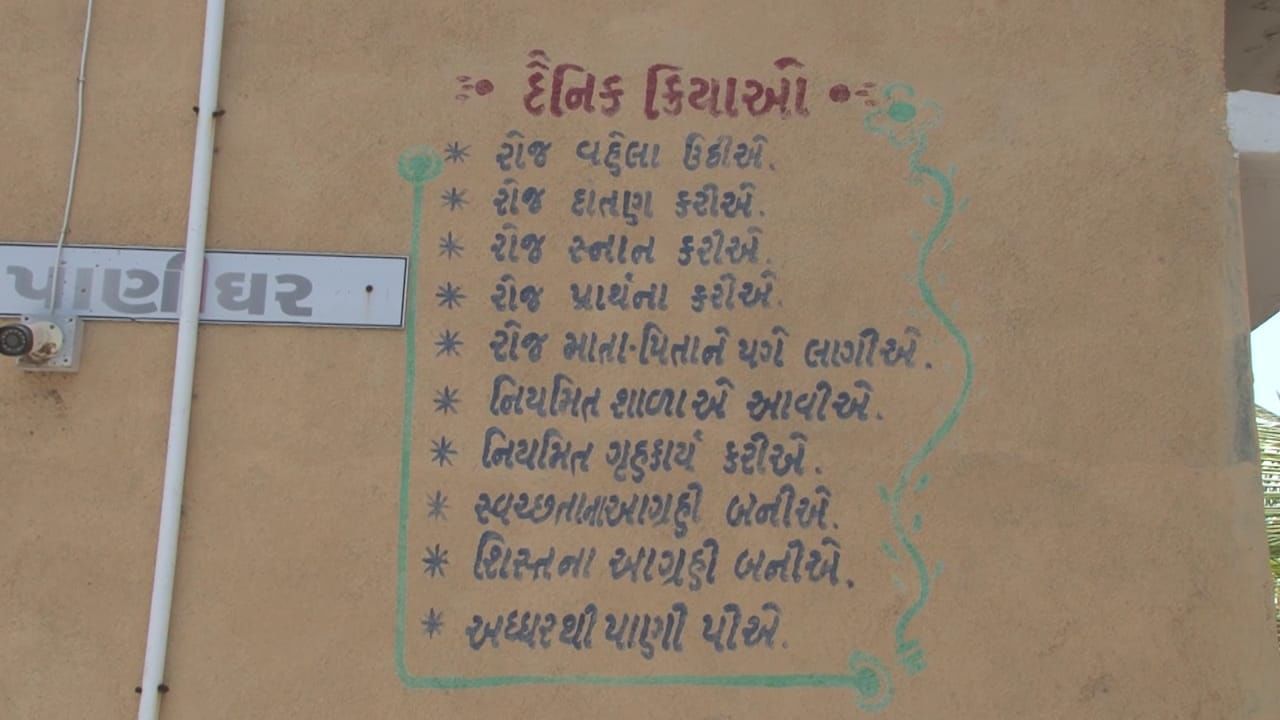 દૈનિક ક્રિયાઓ
* રોજ વહેલા ઉઠીએ.
* રોજ દાતણ કરીએ.
* રોજ સ્નાન કરીએ.
* રોજ પ્રાર્થના કરીએ.
* રોજ માતા-પિતાને પગે લાગીએ.
* નિયમિત શાળાએ આવીએ.
* નિયમિત ગૃહકાર્ય કરીએ.
* સ્વચ્છતાના આગ્રહી બનીએ.
* શિસ્તના આગ્રહી બનીએ.
* અધ્ધરથી પાણી પીએ.
પાણીઘર